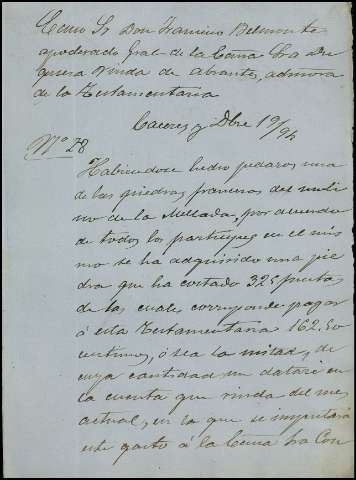 Excmo Sr Don Francisco Belmonte
apoderado Gral de la Excma Sra Du
quesa Viuda de Abrantes, admora
de la Testamentaria
Caceres y Dbre 19/94
Nº 28
Habiendose hecho pedazos una
de las piedras franceras del moli
no de la Mellada, por acuerdo
de todos los participes en el mis
mo se ha adquirido una pie
dra que ha costado 325 pesetas
de las cuales corresponde pagar
á esta Testamentaria 162.50
centimos, ó sea la mitad, de
cuya cantidad me dataré en
la cuenta que rinda del mes
actual, en la que se imputará
este gasto á la Excma Sra Con